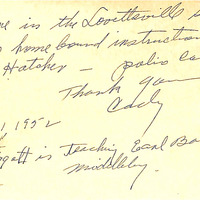 in the Lovettsville
home bound instruction
Hatcher — polio ca
Thank you
Cady
1, 1952
is teaching Earl Ba
Middleby.